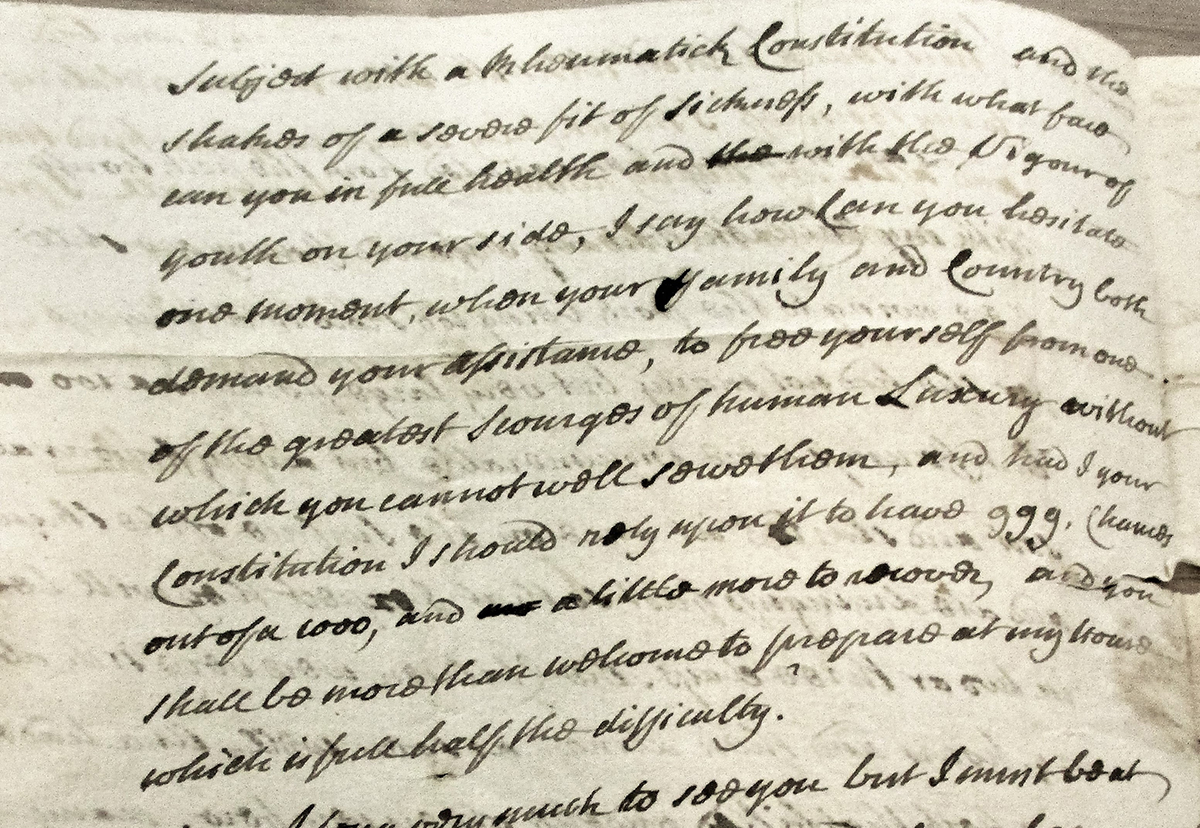 Subject with a Rheumatick Constitution and the
shakes of a severe fit of Sickness, with what face
can you in full health and the with the Vigour of
youth on your side, I say how Can you hesitate
one moment, when your Family and Country both
demand your assistance, to free yourself from one
of the greatest Scourges of human Luxury without
which you cannot well serve them, and had I your
Constitution I should rely upon it to have 999. Chances
out of a 1000, and a little more to recover, and you
shall be more than welcome to prepare at my house
which is full half the difficulty.
I long very much to see you but I must be at